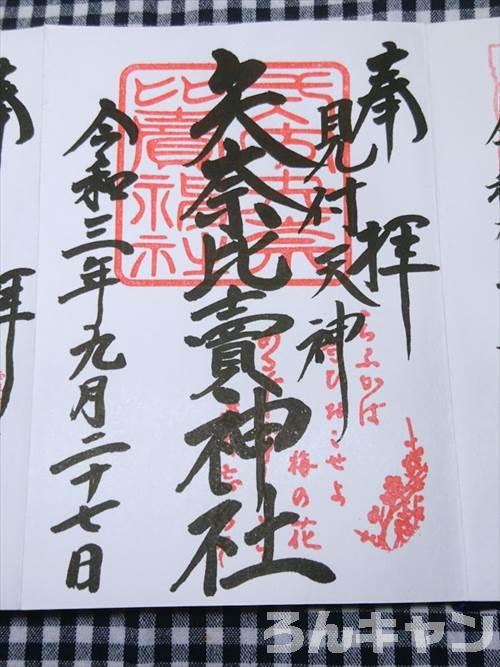 奉拝
見付天神
矢奈比賣神社
令和三年九月二十七日
矢奈比賣神社
ふかば
ひおこせよ
梅の花
奉
拝
ろんキャン